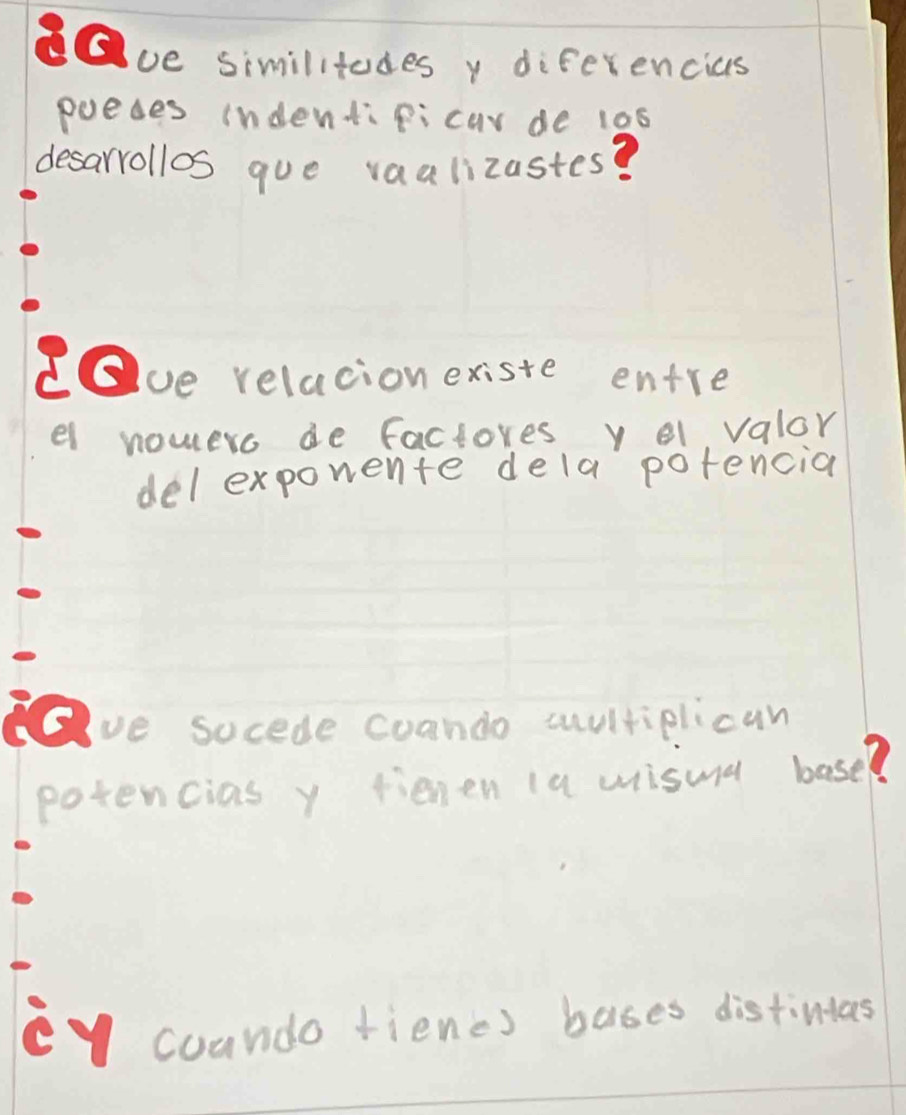 ¿Que similitudes y diferencias
puedes indentificar de los
desarrollos que raalizastes?
¿Que relacion existe entre
el numero de factores y el valor
del exponente dela potencia
¿Que sucede cuando multiplican
potencias y tienen la misma base?
¿y cuando tienes bases distintas